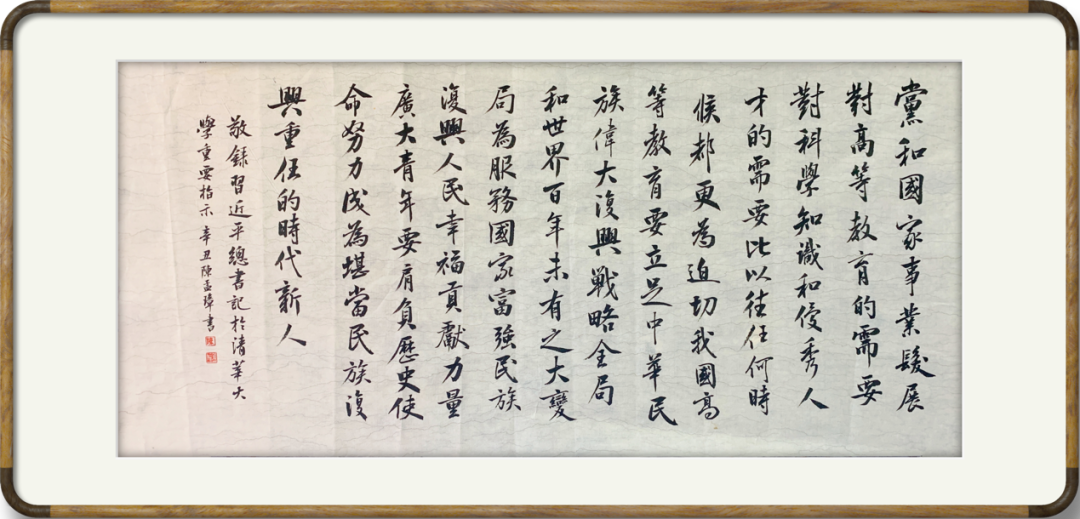 黨和國家事業髮展
對高等教育的需要
對科學知識和優秀人
才的需要比以往任何時
候都更為迫切我國高
等教育要立足中華民
族偉大復興戰略全局
和世界百年未有之大變
局為服務國家富強民族
復興人民幸福貢獻力量
廣大青年要肩負歷史使
命努力成為堪當民族復
興重任的時代新人
敬錄習近平總書記於清華大
學重要指示 辛丑陳孟璋書